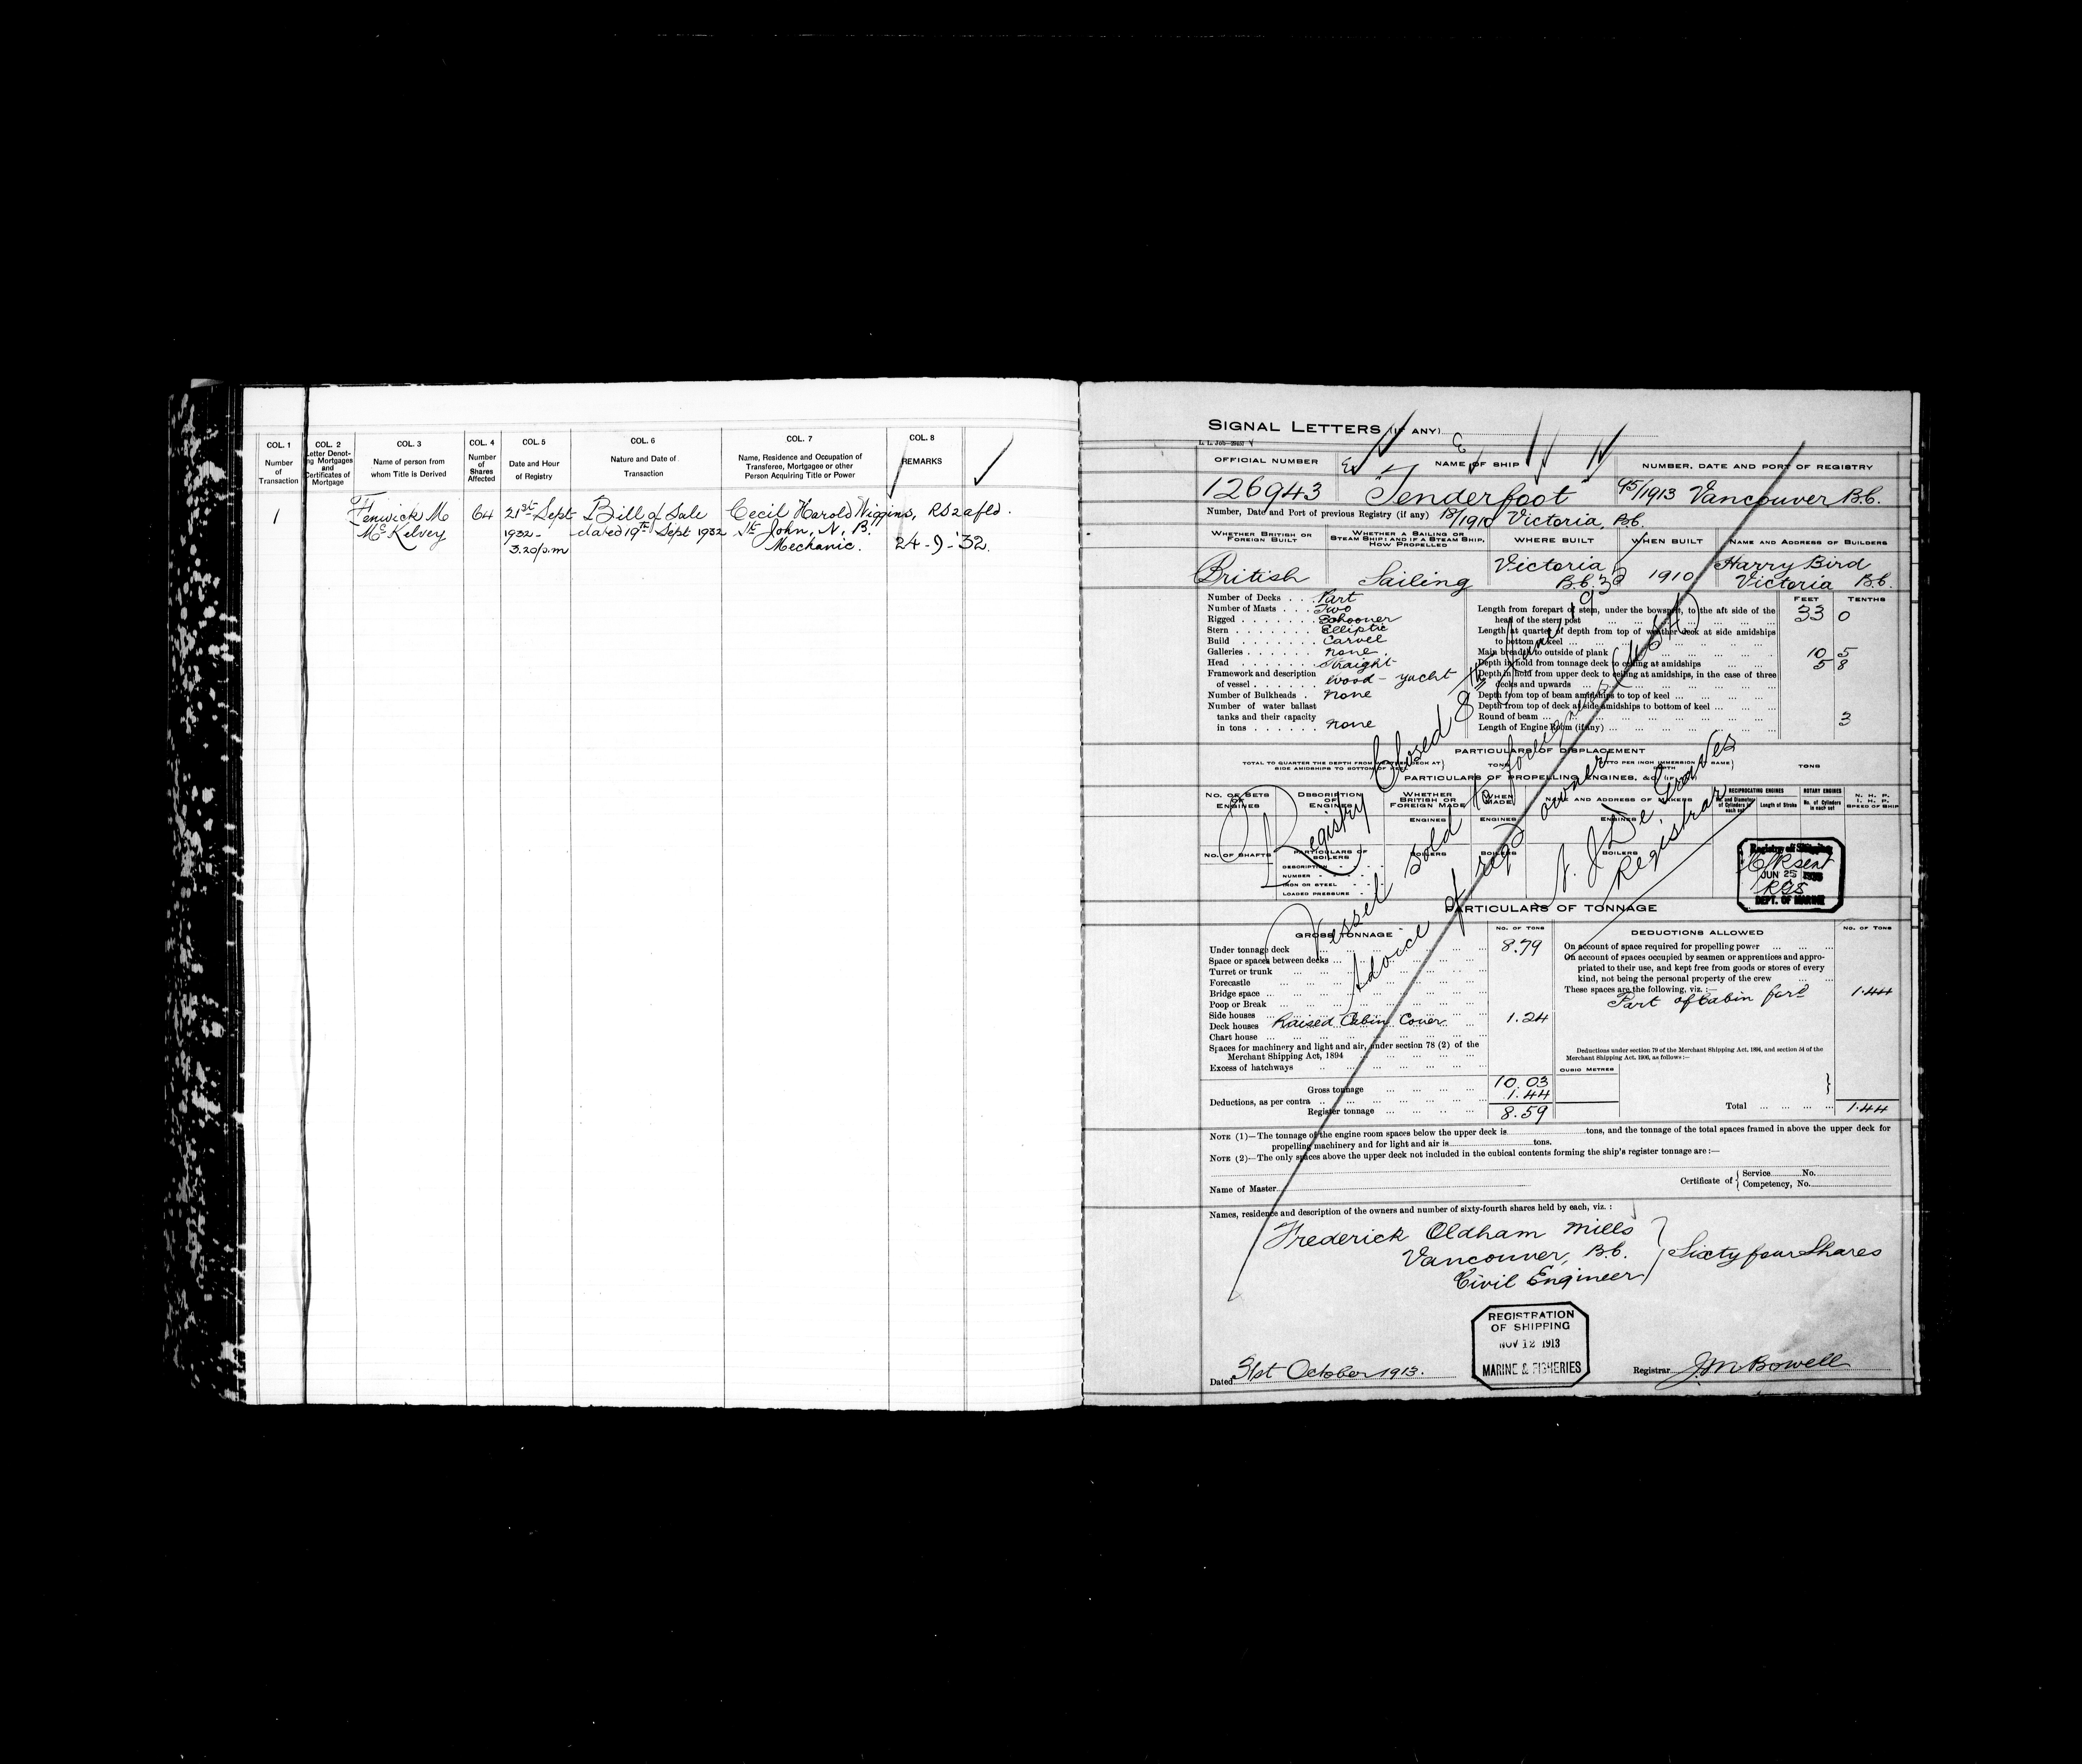 COL. 1
Number
of
Transaction
COL. 2
Letter Denot-
ing Mortgages
and
Certificates of
Mortgage
COL. 3
Name of person from
whom Title is Derived
COL. 4
Number
of
Shares
Affected
COL. 5
Date and Hour
of Registry
COL. 6
Nature and Date of
Transaction
COL. 7
Name, Residence and Occupation of
Transferee, Mortgagee or other
Person Acquiring Title or Power
COL. 8
REMARKS
1
Fenwick M
McKelvey
64
21st Sept
1932-
3.20 p.m
Bill of Sale
dated 19th Sept 1932
Cecil Harold Wiggins,
St. John, N. B.
Mechanic.
24-9-'32.
SIGNAL LETTERS (IF ANY)
OFFICIAL NUMBER
NAME OF SHIP
NUMBER, DATE AND PORT OF REGISTRY
126943
"Tenderfoot"
45/1913 Vancouver B.C.
Number, Date and Port of previous Registry (if any) 13/1910 Victoria, B.C.
WHETHER BRITISH OR
FOREIGN BUILT
WHETHER A SAILING OR
STEAM SHIP; AND IF A STEAM SHIP,
HOW PROPELLED
WHERE BUILT
WHEN BUILT
NAME AND ADDRESS OF BUILDERS
British
Sailing
Victoria
B.C.
1910
Harry Bird
Victoria B.C.
Number of Decks Part
Number of Masts Two
Rigged Schooner
Stern Elliptic
Build Carvel
Galleries none
Head Straight
Framework and description
of vessel Wood - yacht
Number of Bulkheads none
Number of water ballast
tanks and their capacity
in tons none
FEET TENTHS
Length from forepart of stem, under the bowsprit, to the aft side of the
head of the stern post 33 0
Length at quarter of depth from top of weather deck at side amidships
to bottom of keel
Main breadth to outside of plank 10 5
Depth in hold from tonnage deck to ceiling at amidships 5 8
Depth in hold from upper deck to ceiling at amidships, in the case of three
decks and upwards
Depth from top of beam amidships to top of keel
Depth from top of deck at side amidships to bottom of keel
Round of beam 3
Length of Engine Room (if any)
PARTICULARS OF DISPLACEMENT
TONS
PARTICULARS OF PROPELLING ENGINES, &C. (IF ANY)
NO. OF SETS
OF
ENGINES
DESCRIPTION
OF
ENGINES
WHETHER
BRITISH OR
FOREIGN MADE
WHEN
MADE
NAME AND ADDRESS OF MAKERS
RECIPROCATING ENGINES
ROTARY ENGINES
No. and Diameter
of Cylinders in
each set
Length of Stroke
No. of Cylinders
in each set
N. H. P.
I. H. P.
SPEED OF SHIP
ENGINES
ENGINES
ENGINES
NO. OF SHAFTS
PARTICULARS OF
BOILERS
BOILERS
BOILERS
BOILERS
DESCRIPTION
NUMBER
IRON OR STEEL
LOADED PRESSURE
Registry Closed 8th June 19
Vessel sold to foreigners
Advice of regd owner
Registrar
Registry of Shipping
JUN 25
DEPT. OF MARINE
PARTICULARS OF TONNAGE
GROSS TONNAGE
NO. OF TONS
DEDUCTIONS ALLOWED
NO. OF TONS
Under tonnage deck 8.79
Space or spaces between decks
Turret or trunk
Forecastle
Bridge space
Poop or Break
Side houses
Deck houses Raised Cabin Cover 1.24
Chart house
Spaces for machinery and light and air, under section 78 (2) of the
Merchant Shipping Act, 1894
Excess of hatchways
Gross tonnage 10.03
Deductions, as per contra 1.44
Register tonnage 8.59
On account of space required for propelling power
On account of spaces occupied by seamen or apprentices and appro-
priated to their use, and kept free from goods or stores of every
kind, not being the personal property of the crew
These spaces are the following, viz.:—
Part of Cabin ford 1.44
Deductions under section 79 of the Merchant Shipping Act, 1894, and section 54 of the
Merchant Shipping Act, 1906, as follows:—
CUBIC METRES
Total 1.44
NOTE (1)—The tonnage of the engine room spaces below the upper deck is tons, and the tonnage of the total spaces framed in above the upper deck for
propelling machinery and for light and air is tons.
NOTE (2)—The only spaces above the upper deck not included in the cubical contents forming the ship's register tonnage are:—
Name of Master
Certificate of { Service No.
Competency, No.
Names, residence and description of the owners and number of sixty-fourth shares held by each, viz.:
Frederick Oldham Mills
Vancouver, B.C.
Civil Engineer
Sixty four Shares
REGISTRATION
OF SHIPPING
NOV 12 1913
MARINE & FISHERIES
Dated 31st October 1913.
Registrar J.M. Bowell